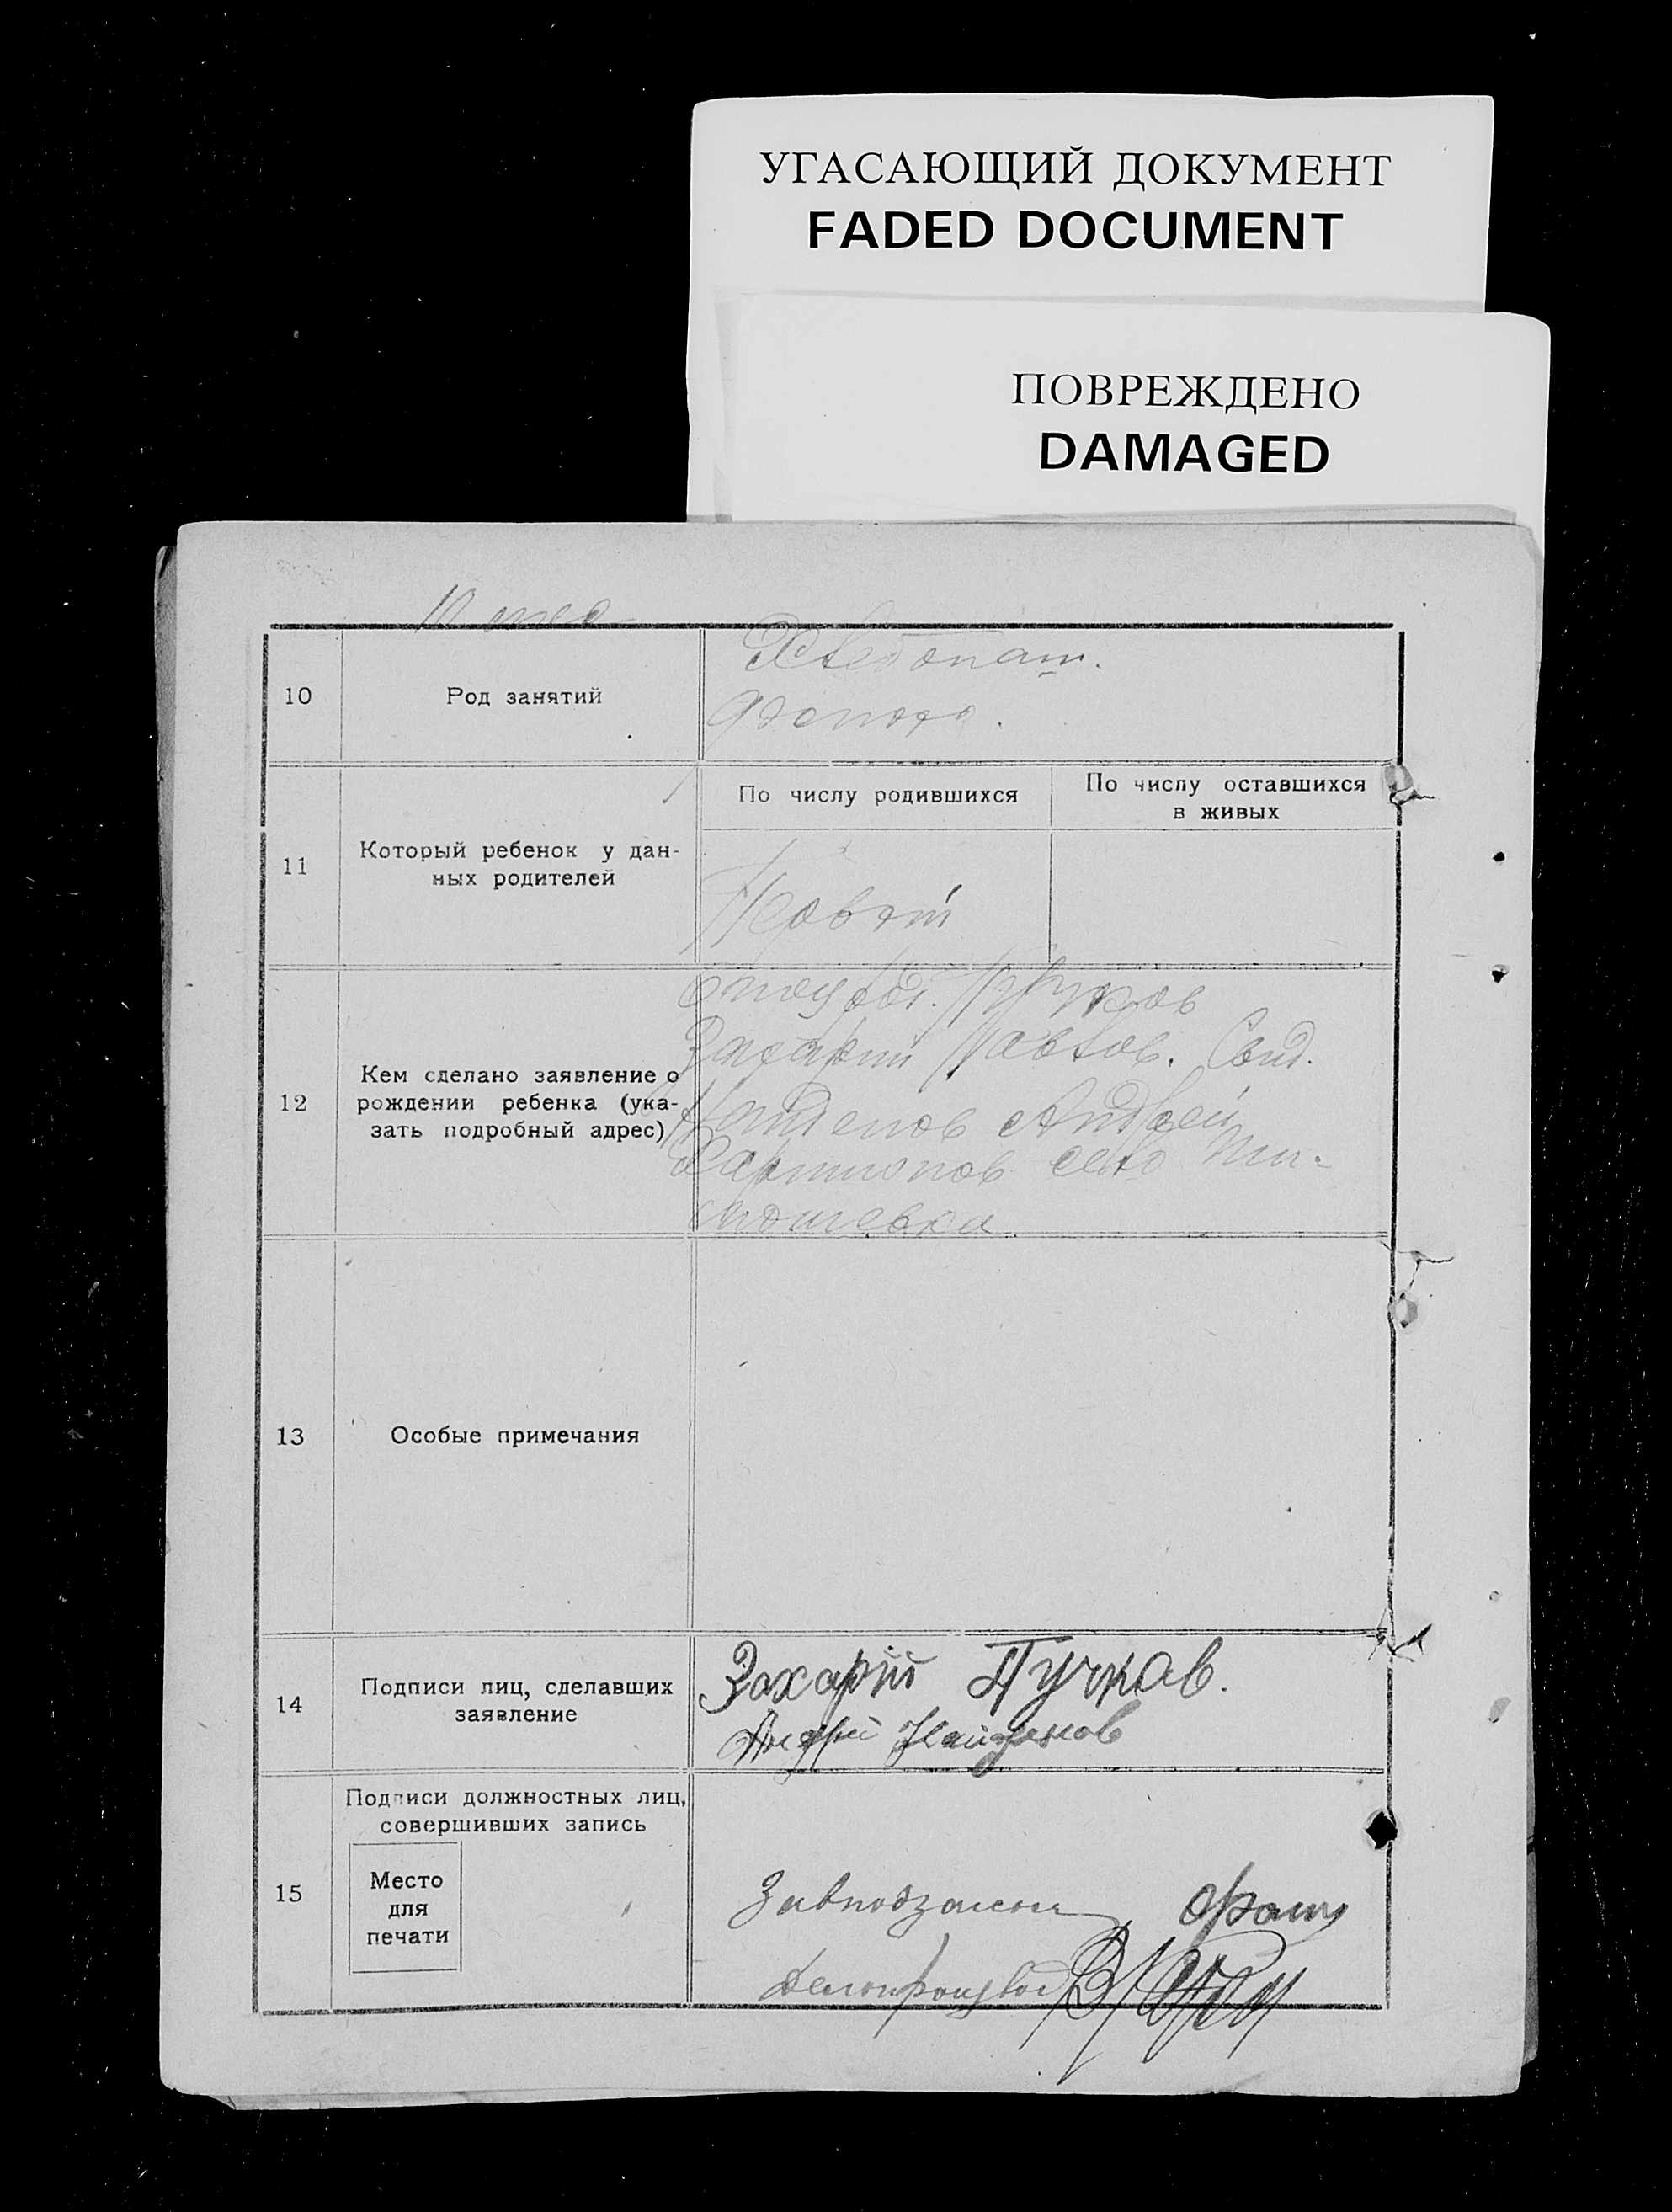 УГАСАЮЩИЙ ДОКУМЕНТ
FADED DOCUMENT
ПОВРЕЖДЕНО
DAMAGED
10
Род занятий
Хлебопаш.
11
Который ребенок у дан-
ных родителей
По числу родившихся
По числу оставшихся
в живых
Первый
12
Кем сделано заявление о
рождении ребенка (ука-
зать подробный адрес)
Пучков
Захарий Павлов. Свид.
Найденов Андрей
Харитонов село
13
Особые примечания
14
Подписи лиц, сделавших
заявление
Захарий Пучков.
Андрей Найденов
15
Подписи должностных лиц,
совершивших запись
Место
для
печати
Завподзагсом
Делопроизвод